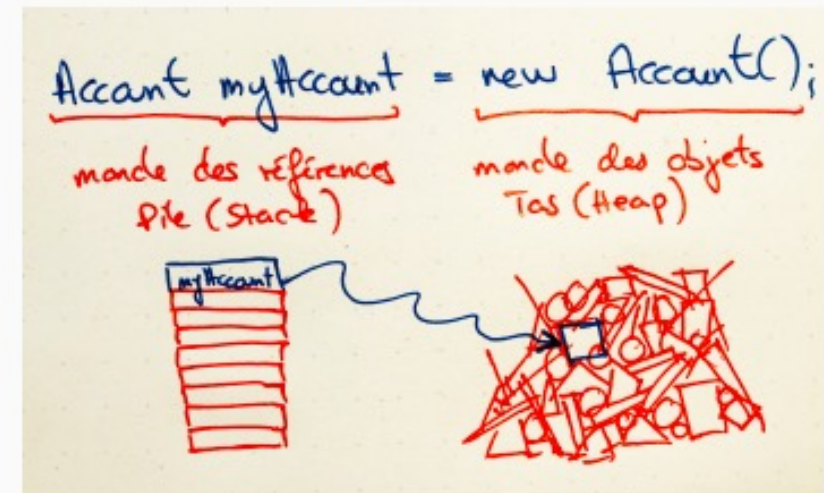 Accant myAccount = new Account();
monde des références
Pile (Stack)
monde des objets
Tas (Heap)
myAccount